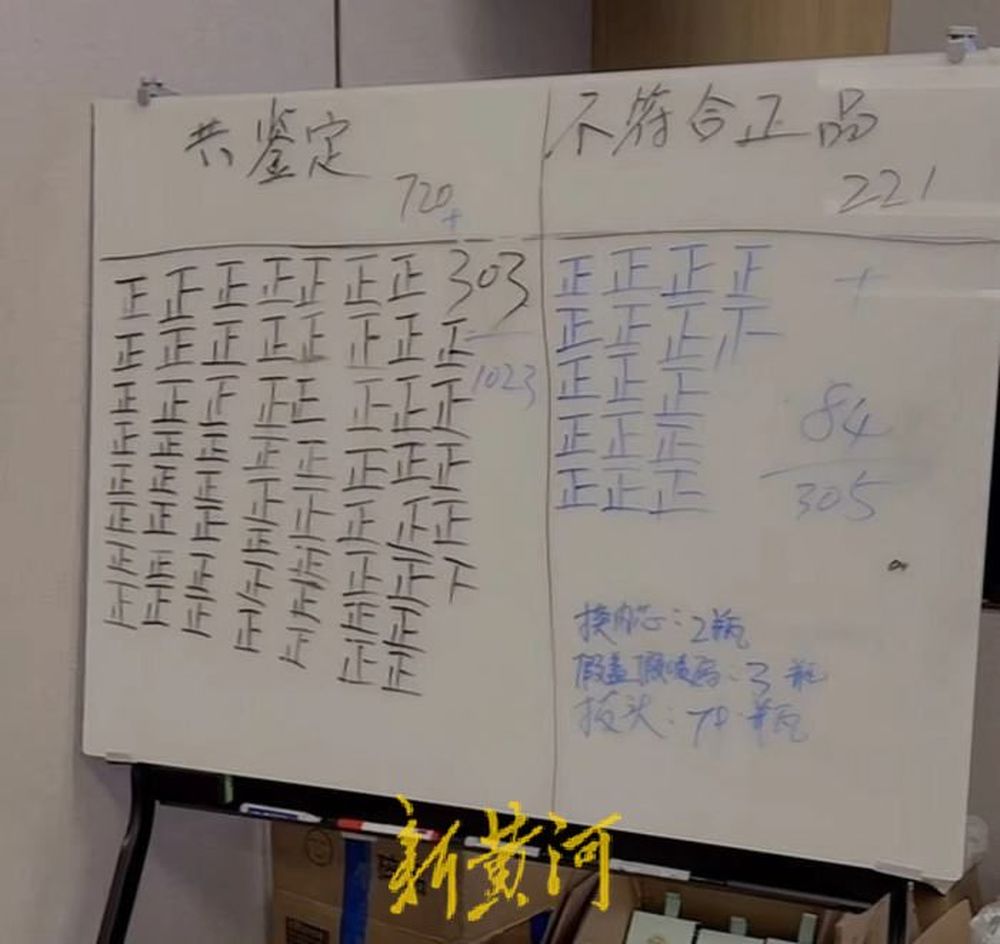 共鉴定
720
+
正正正正正正正 303
正正正正正正正正
1023
正正正正正正正正
正正正正正正正正
正正正正正正正正
正正正正正正正下
正正正正正正正
正正正正正正正
不符合正品
221
正正正正 +
正正正
正正正
84
正正正
正正正
305
换内芯：2瓶
假盖假喷码：3瓶
拔头：79瓶
新黄河